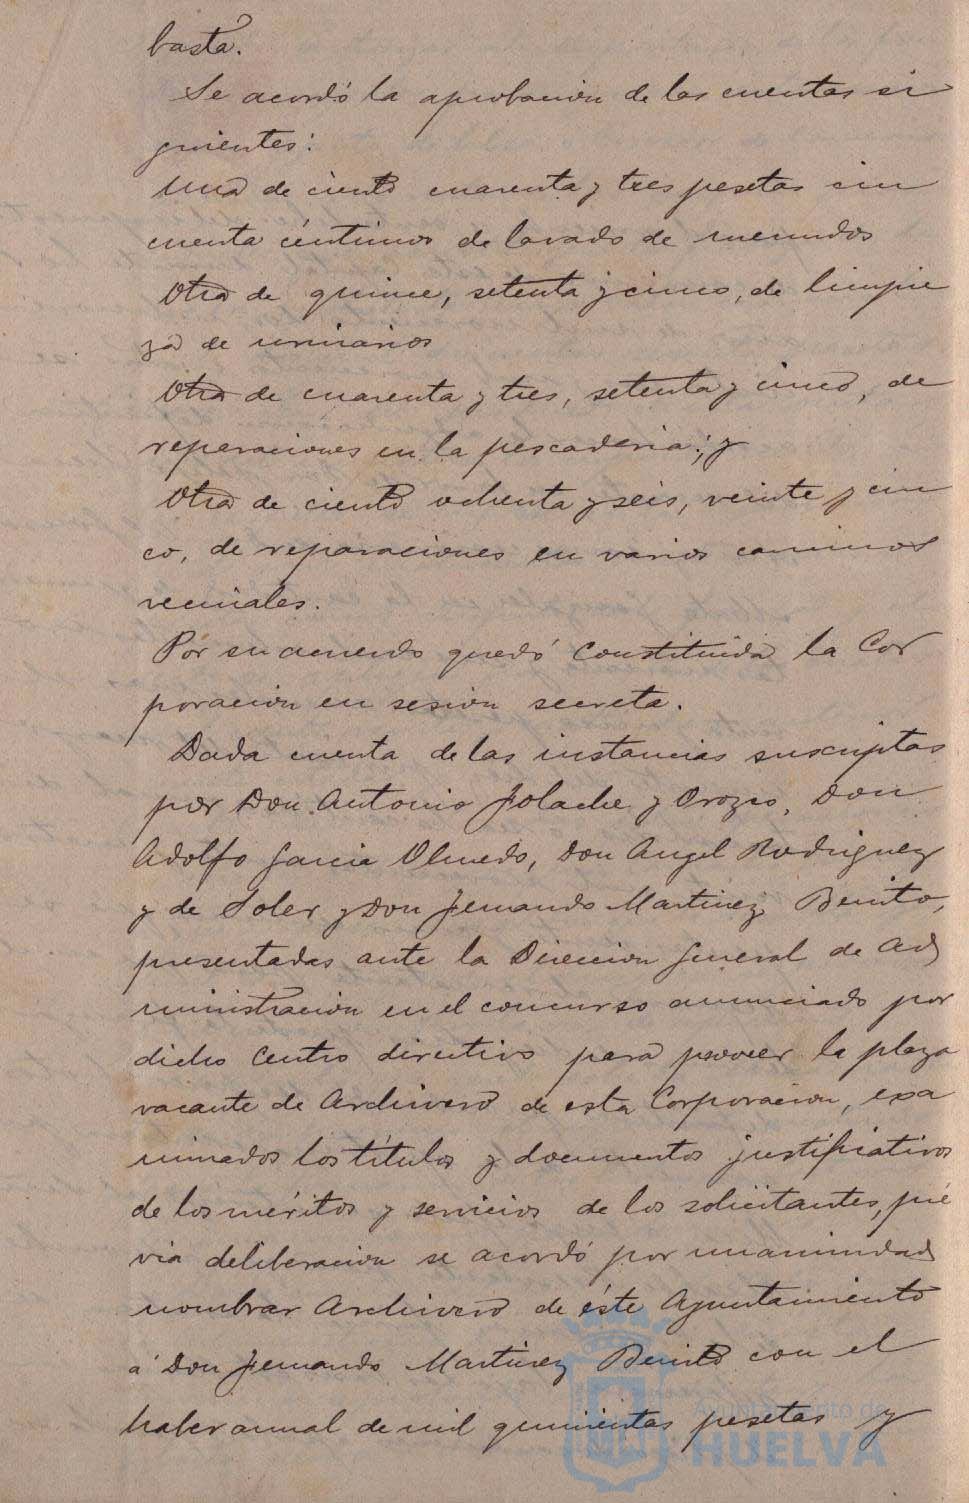 basta.
Se acordó la aprobacion de las cuentas si
guientes:
Una de ciento cuarenta y tres pesetas cin
cuenta céntimos de lavado de menudos
Otra de quince, setenta y cinco, de limpie
za de urinarios
Otra de cuarenta y tres, setenta y cinco, de
reparaciones en la pescaderia; y
Otra de ciento ochenta y seis, veinte y cin
co, de reparaciones en varios caminos
vecinales.
Por su acuerdo quedó constituida la Cor
poracion en sesion secreta.
Dada cuenta de las instancias suscriptas
por Don Antonio Jolache y Orozco, Don
Adolfo Garcia Olmedo, Don Angel Rodriguez
y de Soler y Don Fernando Martinez Benito,
presentadas ante la Direccion General de Ad
ministracion en el concurso anunciado por
dicho Centro directivo para proveer la plaza
vacante de Archivero de esta Corporacion, exa
minados los títulos y documentos justificativos
de los méritos y servicios de los solicitantes, pré
via deliberacion se acordó por unanimidad
nombrar Archivero de éste Ayuntamiento
á Don Fernando Martinez Benito con el
haber anual de mil quinientas pesetas y
Ayuntamiento de
HUELVA